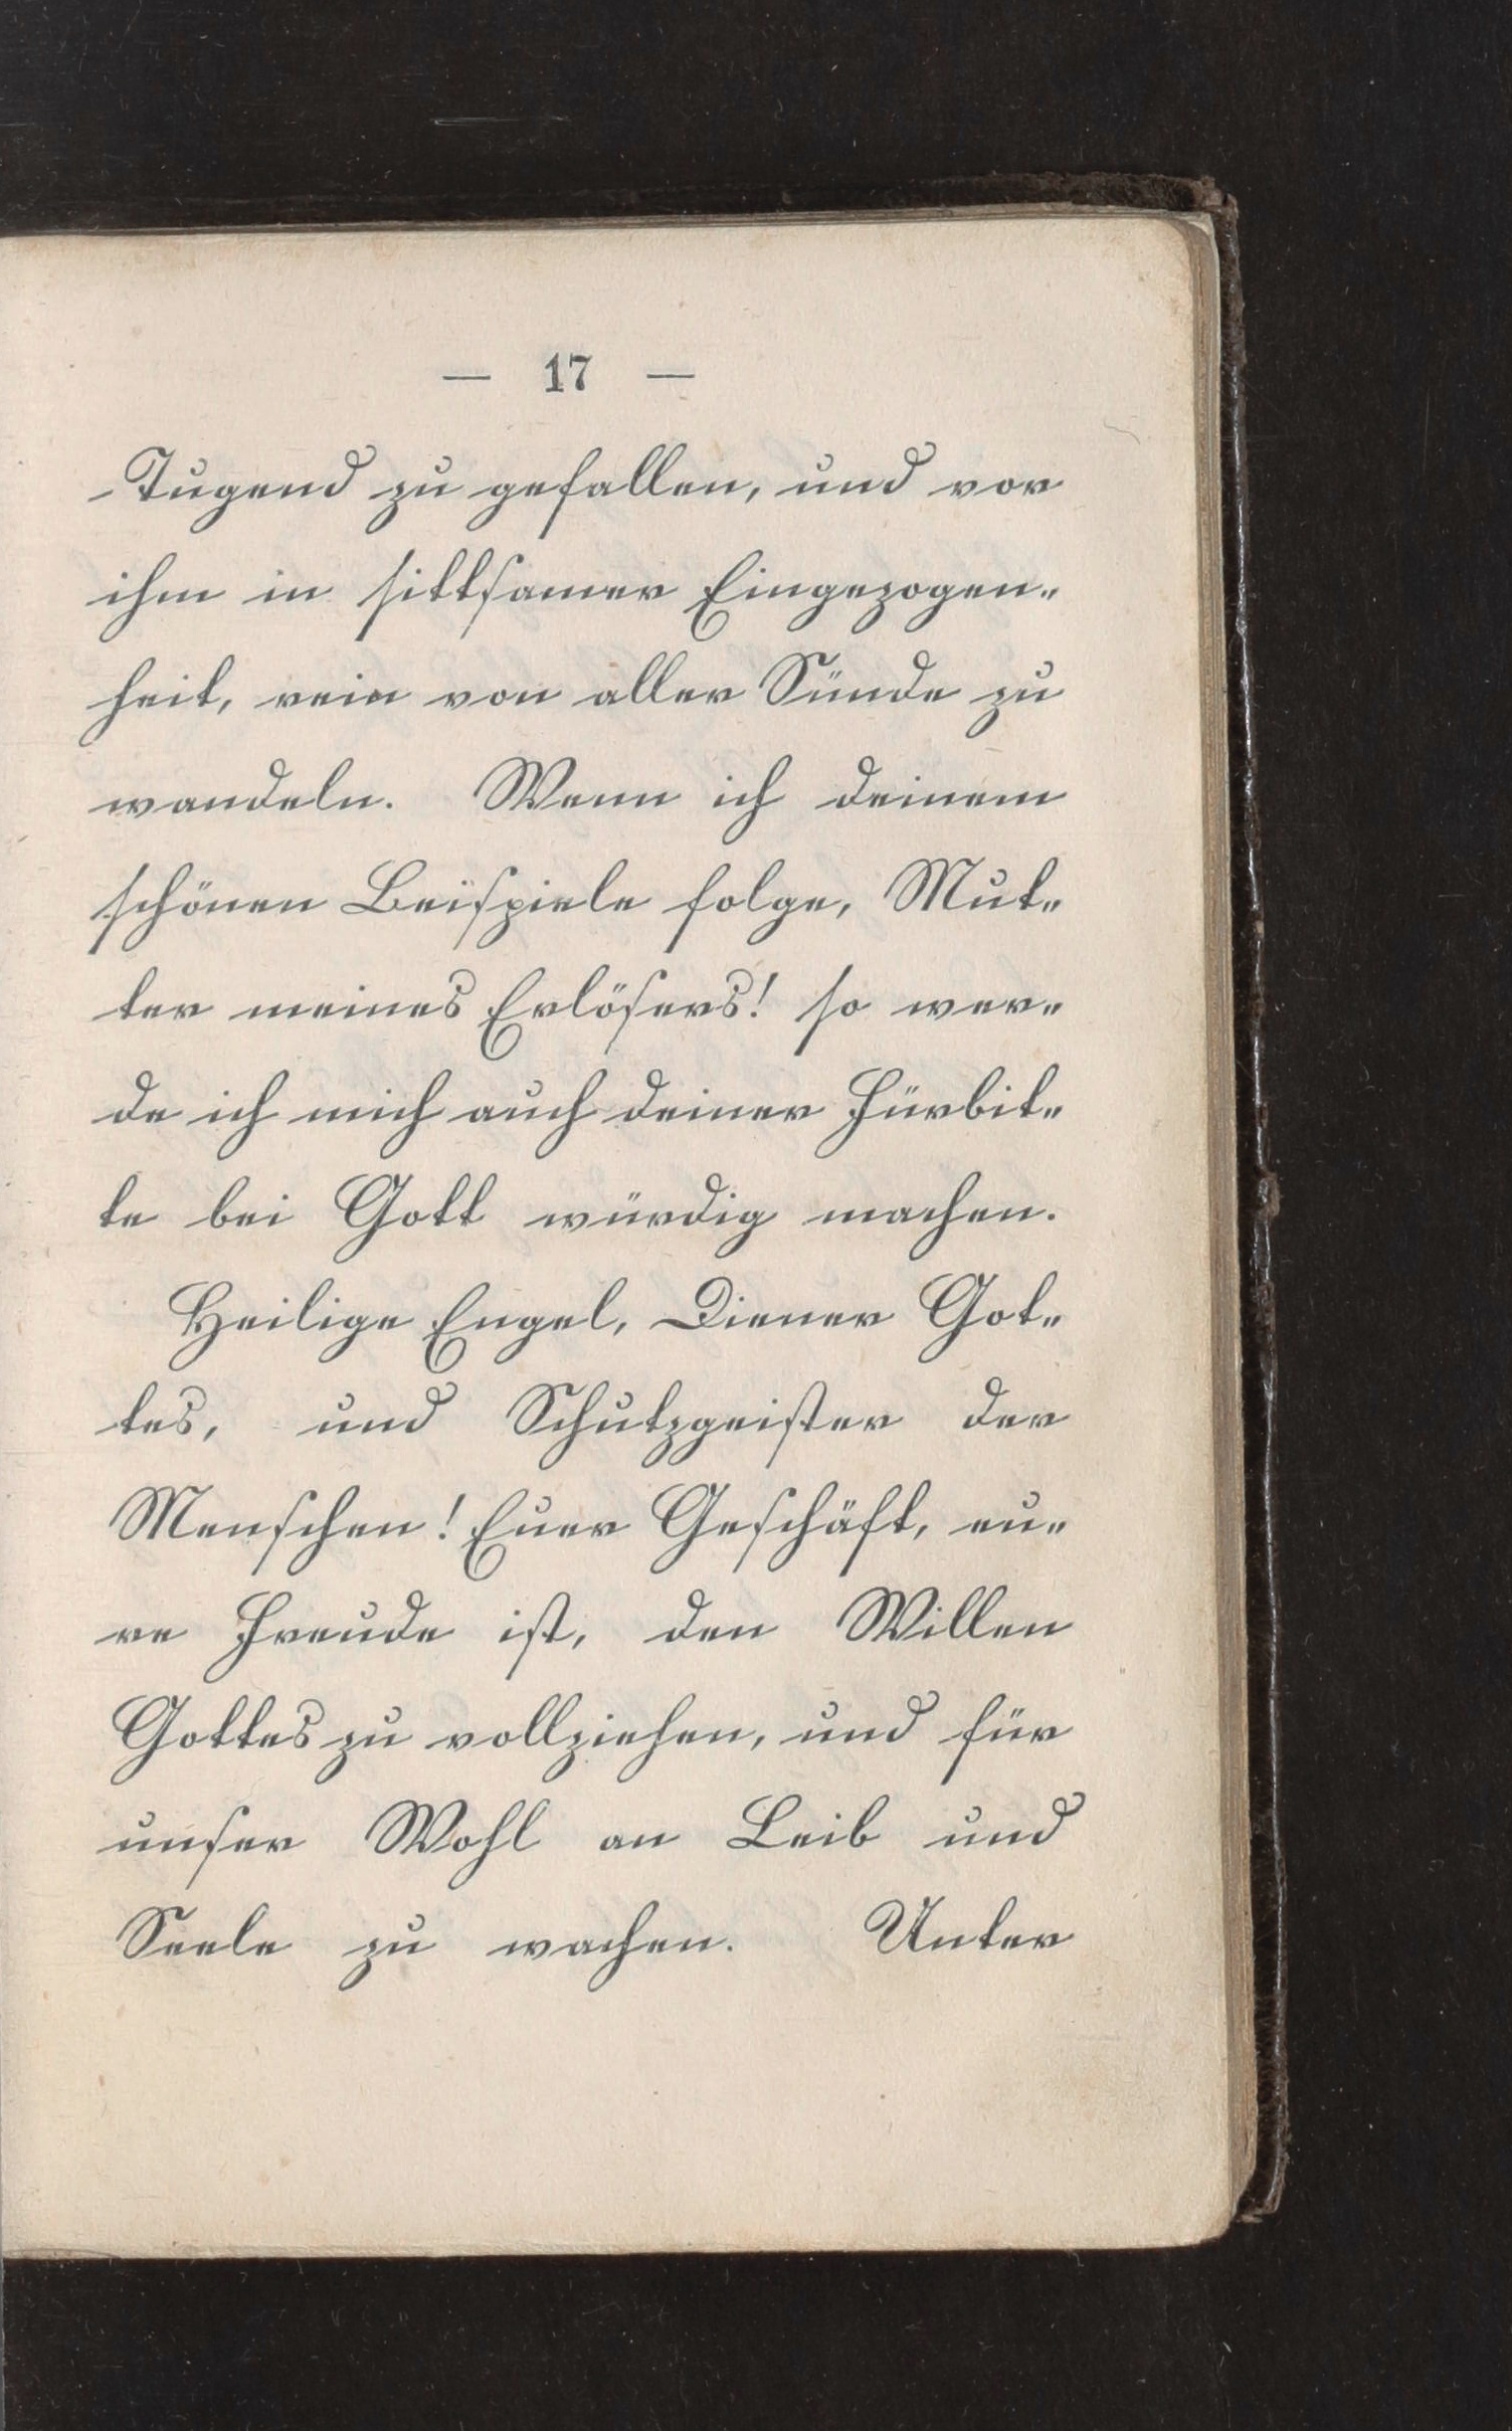 — 17 —
Tugend zu gefallen, und vor
ihm in sittsamer Eingezogen-
heit, rein von aller Sünde zu
wandeln. Wenn ich deinem
schönen Beispiele folge, Mut-
ter meines Erlösers! so wer-
de ich mich auch deiner Fürbit-
te bei Gott würdig machen.
Heilige Engel, Diener Got-
tes, und Schutzgeister der
Menschen! Euer Geschäft, eu-
re Freude ist, den Willen
Gottes zu vollziehen, und für
unser Wohl an Leib und
Seele zu wachen. Unter